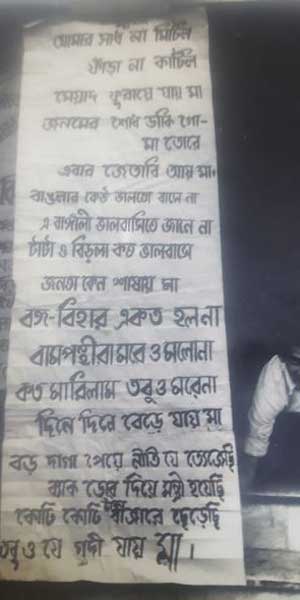 আমার সাধ না মিটিল
ফাঁড়া না কাটিল
মেয়াদ ফুরায়ে যায় মা
জনমের শোধ ডাকি গো-
মা তোরে
এবার জেতাবি আয় মা।
বাঙলার কেউ ভালতো বাসে না
এ বাঙ্গালী ভালবাসিতে জানে না
টাটা ও বিড়লা কত ভালবাসে
জনতা কেন শাষায় মা
বঙ্গ-বিহার একত হলনা
বামপন্থীরা মরে ও মলোনা
কত মারিলাম তবুও মরেনা
দিনে দিনে বেড়ে যায় মা
বড় দাগা পেয়ে নীতি যে ত্যেজেছি
ব্যাক ডোর দিয়ে মন্ত্রী হয়েছি
কোটি কোটি টাকা বাজারে ছেড়েছি
তবু ও যে গদী যায় মা।